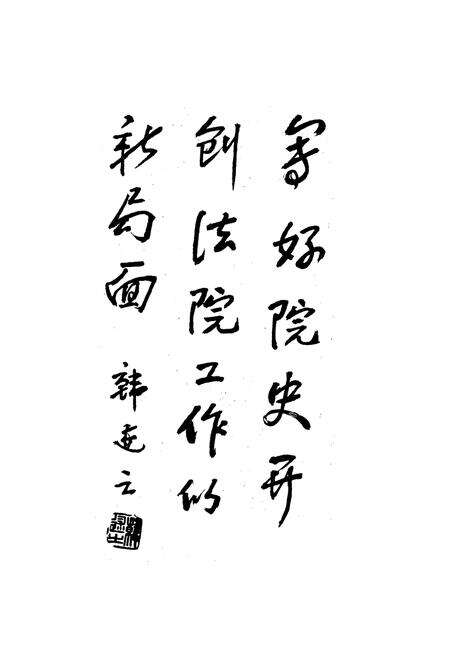 写好院史开
创法院工作的
新局面
韩延云